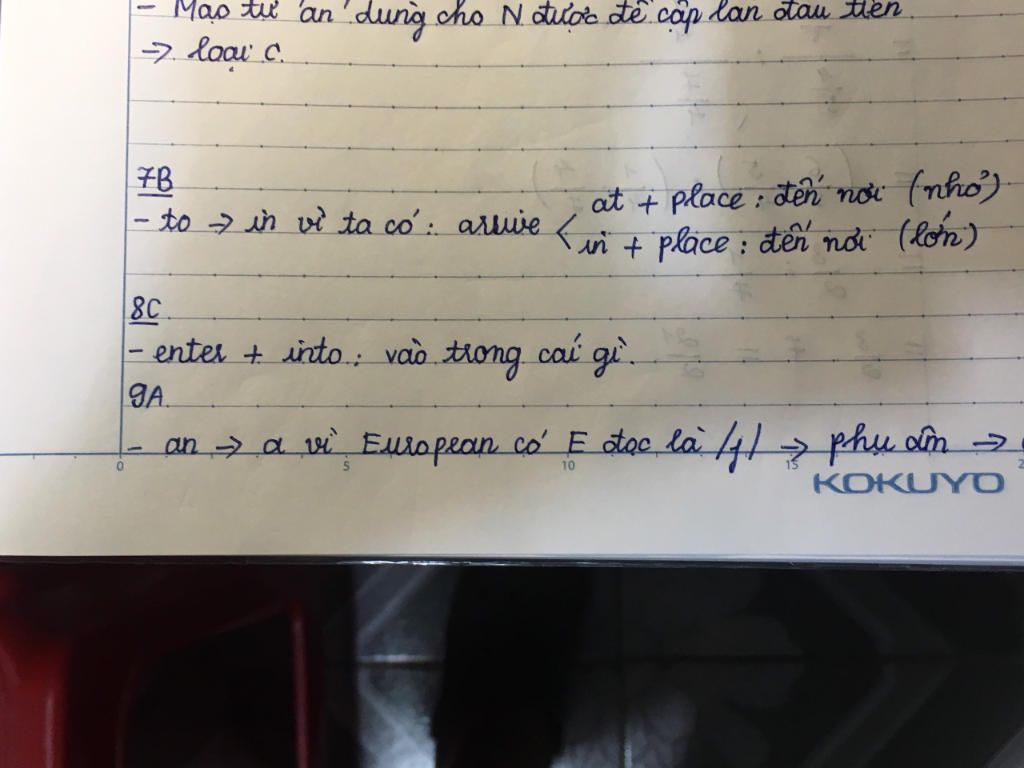 - Mạo từ 'an' dùng cho N được đề cập lần đầu tiên.
→ loại C.
7B
- to → in vì ta có: arrive < at + place : đến nơi (nhỏ)
in + place : đến nơi (lớn)
8C
- enter + into : vào trong cái gì.
9A
- an → a vì European có E đọc là /j/ → phụ âm →
0 5 10 15 2
KOKUYO